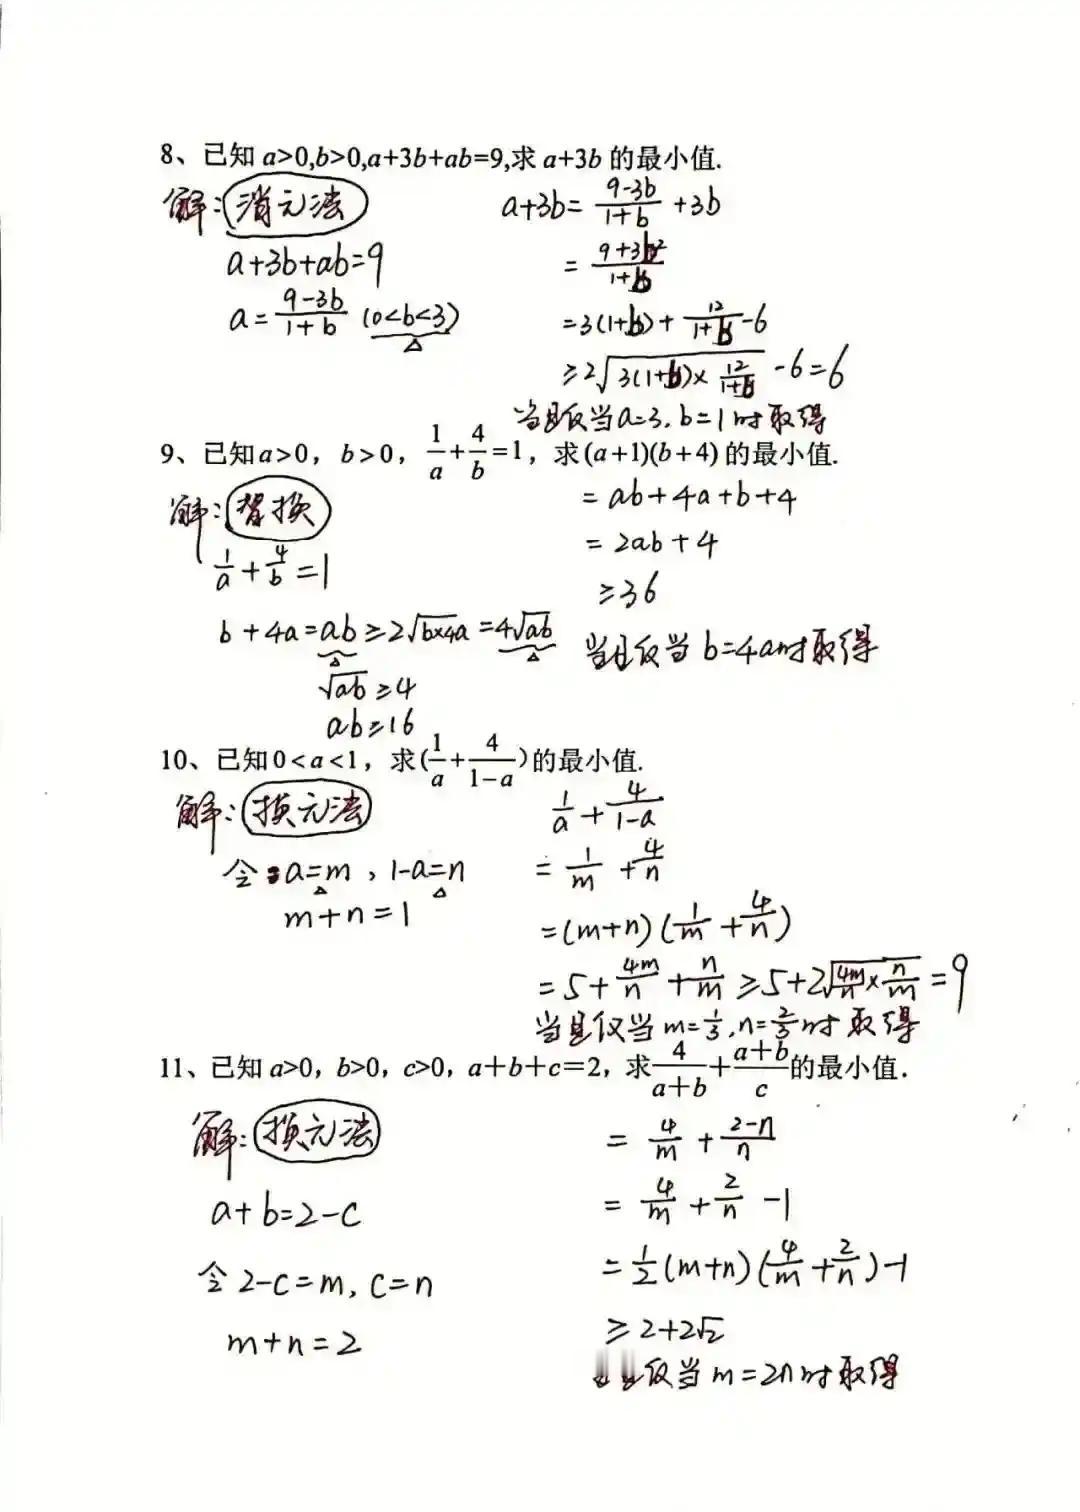 8、已知 a>0,b>0,a+3b+ab=9,求 a+3b 的最小值.
解:消元法
a+3b+ab=9
a=\frac{9-3b}{1+b} (0<b<3)
a+3b=\frac{9-3b}{1+b}+3b
=\frac{9+3b²}{1+b}
=3(1+b)+\frac{12}{1+b}-6
≥2\sqrt{3(1+b)×\frac{12}{1+b}}-6=6
当且仅当a=3.b=1时取得
9、已知a>0，b>0，\frac{1}{a}+\frac{4}{b}=1，求(a+1)(b+4)的最小值.
解:替换
\frac{1}{a}+\frac{4}{b}=1
b+4a=ab≥2\sqrt{b×4a}=4\sqrt{ab}
\sqrt{ab}≥4
ab≥16
=ab+4a+b+4
=2ab+4
≥36
当且仅当b=4a时取得
10、已知0<a<1，求(\frac{1}{a}+\frac{4}{1-a})的最小值.
解:换元法
令a=m，1-a=n
m+n=1
\frac{1}{a}+\frac{4}{1-a}
=\frac{1}{m}+\frac{4}{n}
=(m+n)(\frac{1}{m}+\frac{4}{n})
=5+\frac{4m}{n}+\frac{n}{m}≥5+2\sqrt{\frac{4m}{n}×\frac{n}{m}}=9
当且仅当m=\frac{1}{3}.n=\frac{2}{3}时取得
11、已知 a>0，b>0，c>0，a+b+c=2，求\frac{4}{a+b}+\frac{a+b}{c}的最小值.
解:换元法
a+b=2-c
令2-c=m,c=n
m+n=2
=\frac{4}{m}+\frac{2-n}{n}
=\frac{4}{m}+\frac{2}{n}-1
=\frac{1}{2}(m+n)(\frac{4}{m}+\frac{2}{n})-1
≥2+2\sqrt{2}
仅当m=2n时取得